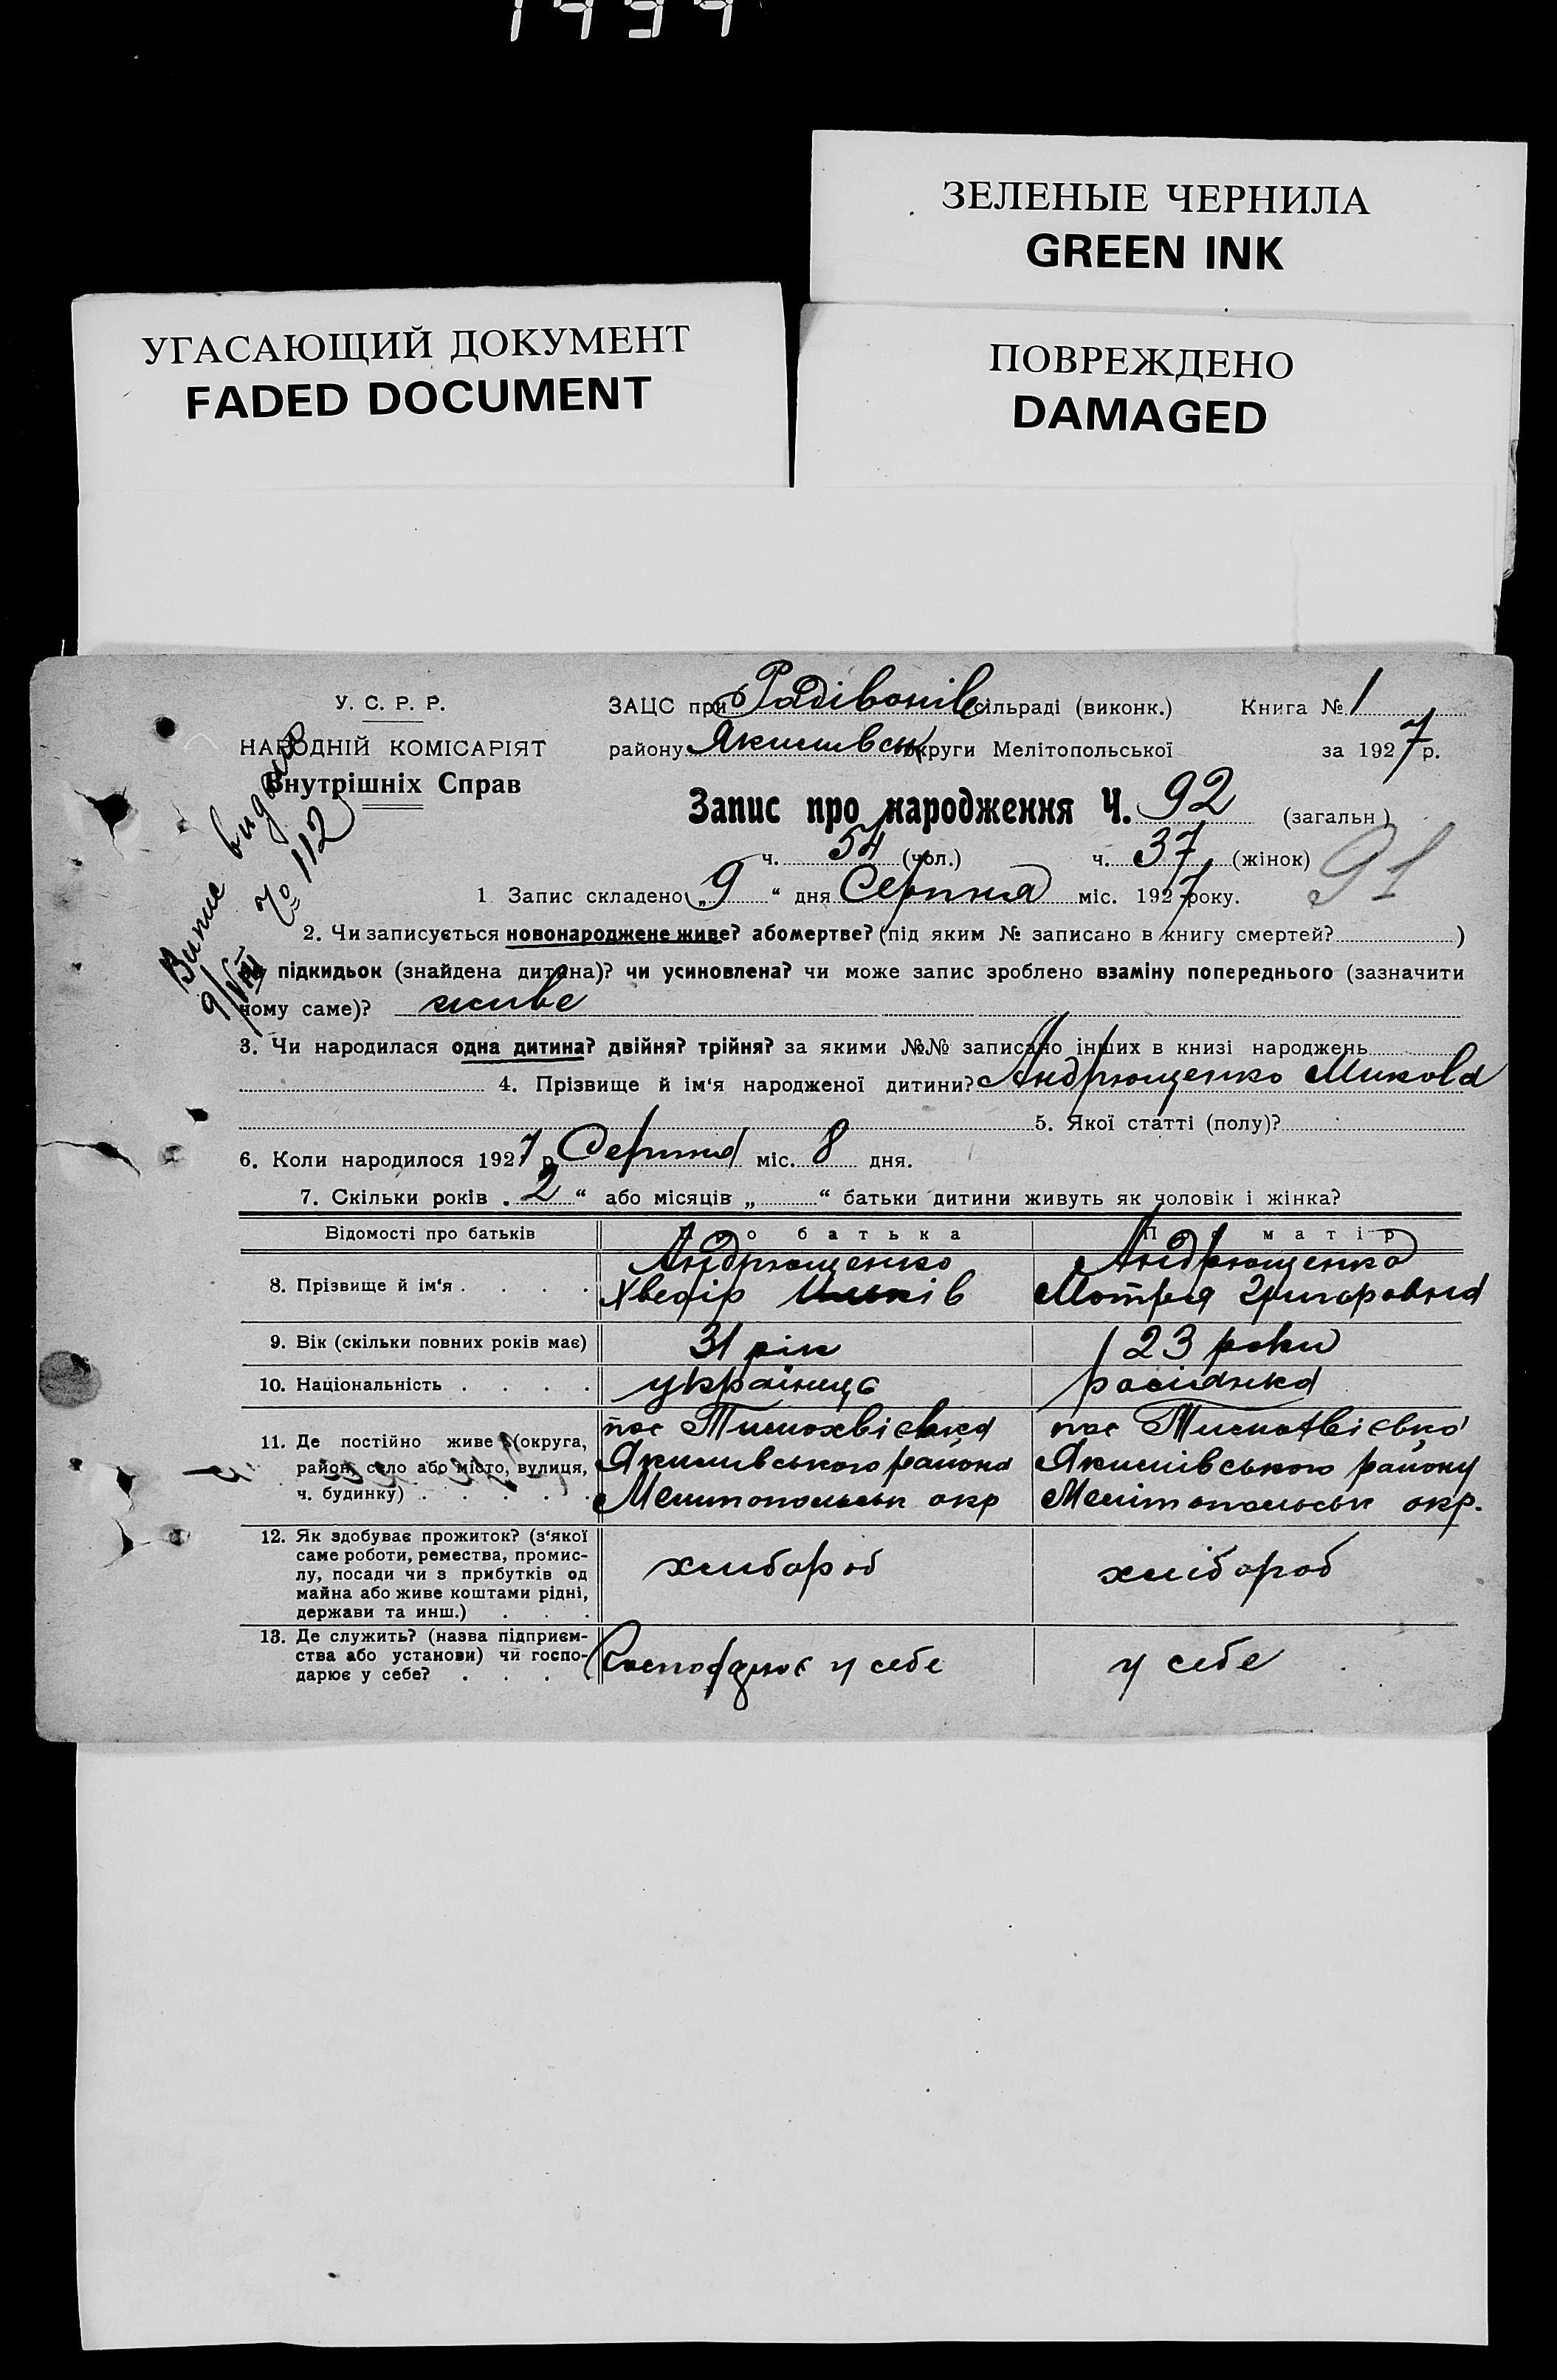 1994
ЗЕЛЕНЫЕ ЧЕРНИЛА
GREEN INK
УГАСАЮЩИЙ ДОКУМЕНТ
FADED DOCUMENT
ПОВРЕЖДЕНО
DAMAGED
У. С. Р. Р.
НАРОДНІЙ КОМІСАРІЯТ
Внутрішніх Справ
Випис видано
9/VIII № 112
ЗАЦС при Радівонів сільраді (виконк.) Книга № 1
району Якимівськ округи Мелітопольської за 1927 р.
Запис про народження Ч. 92 (загальн.)
ч. 54 (чол.) ч. 37 (жінок)
91
1 Запис складено „9“ дня Серпня міс. 1927 року.
2. Чи записується новонароджене живе? або мертве? (під яким № записано в книгу смертей? )
підкидьок (знайдена дитяна)? чи усиновлена? чи може запис зроблено взаміну попереднього (зазначити
чому саме)? живе
3. Чи народилася одна дитина? двійня? трійня? за якими №№ записано інших в книзі народжень
4. Прізвище й ім‘я народженої дитини? Андрющенко Микола
5. Якої статті (полу)?
6. Коли народилося 1927 р. Серпня міс. 8 дня.
7. Скільки років „2“ або місяців „ “ батьки дитини живуть як чоловік і жінка?
Відомості про батьків Про батька Про матір
8. Прізвище й ім‘я . . . . Андрющенко Хведір Андрющенко Мотря Григоровна
9. Вік (скільки повних років має) 31 рік 23 роки
10. Національність . . . . українець росіянка
11. Де постійно живе (округа, пос Тимохвієвка пос Тимохвієвка
район, село або місто, вулиця, Якимивського района Якимівського району
ч. будинку) . . . . . Мелитопольськ окр Мелітопольськ окр.
12. Як здобуває прожиток? (з‘якої
саме роботи, ремества, промис-
лу, посади чи з прибутків од хлібороб хлібороб
майна або живе коштами рідні,
держави та инш.) . . .
13. Де служить? (назва підприєм-
ства або установи) чи госпо- Господарює у себе у себе
дарює у себе? . . . .